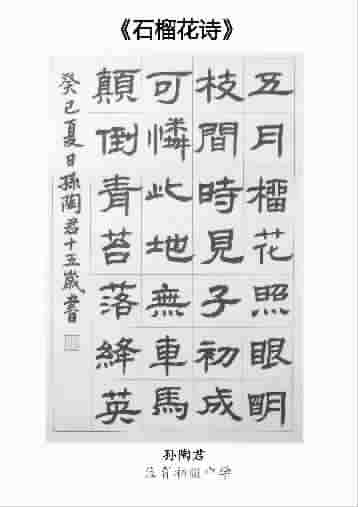 《石榴花诗》
五月榴花照眼明
枝間時見子初成
可憐此地無車馬
顛倒青苔落絳英
癸巳夏日孫陶君十五歲書
孙陶君